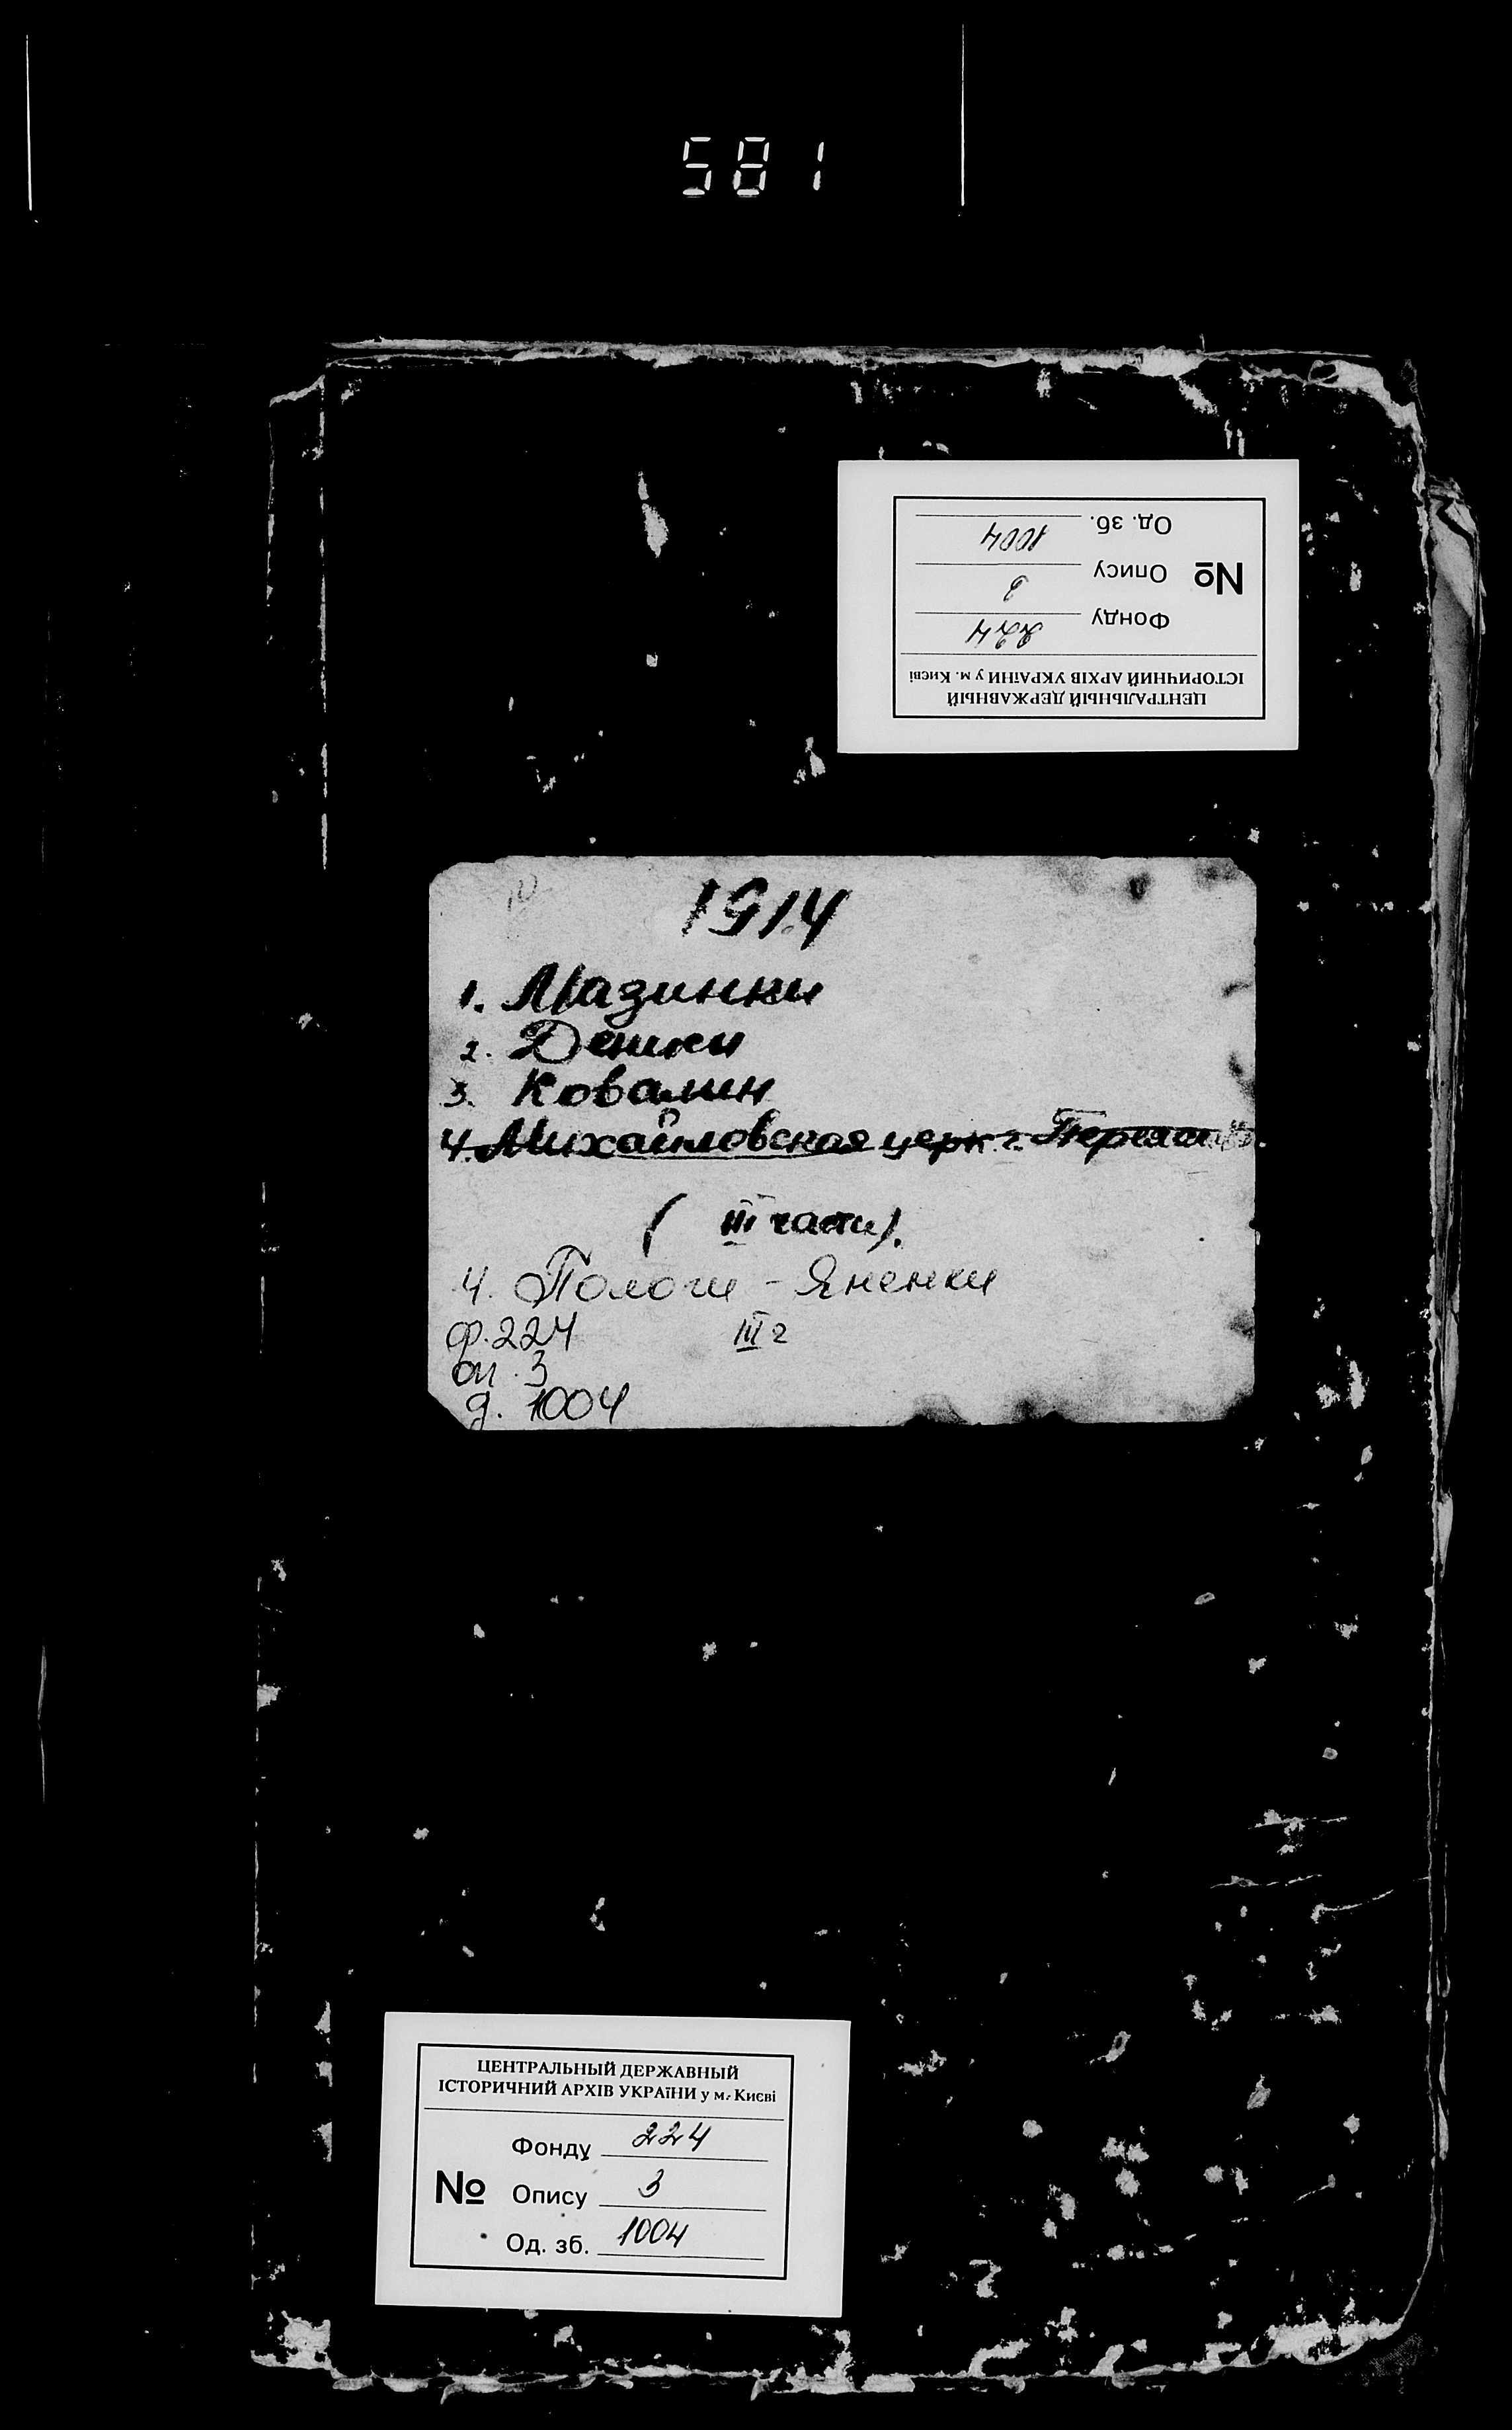 581
ЦЕНТРАЛЬНЫЙ ДЕРЖАВНЫЙ
ІСТОРИЧНИЙ АРХІВ УКРАЇНИ у м. Києві
№
Фонду 224
Опису 3
Од. зб. 1004
1914
1. Мазинки
2. Демки
3. Ковалин
4. Михайловская церк. г. Переясл
(III части).
4. Пологи - Яненки
ф. 224 III г
оп. 3
д. 1004
ЦЕНТРАЛЬНЫЙ ДЕРЖАВНЫЙ
ІСТОРИЧНИЙ АРХІВ УКРАЇНИ у м. Києві
Фонду 224
№ Опису 3
Од. зб. 1004